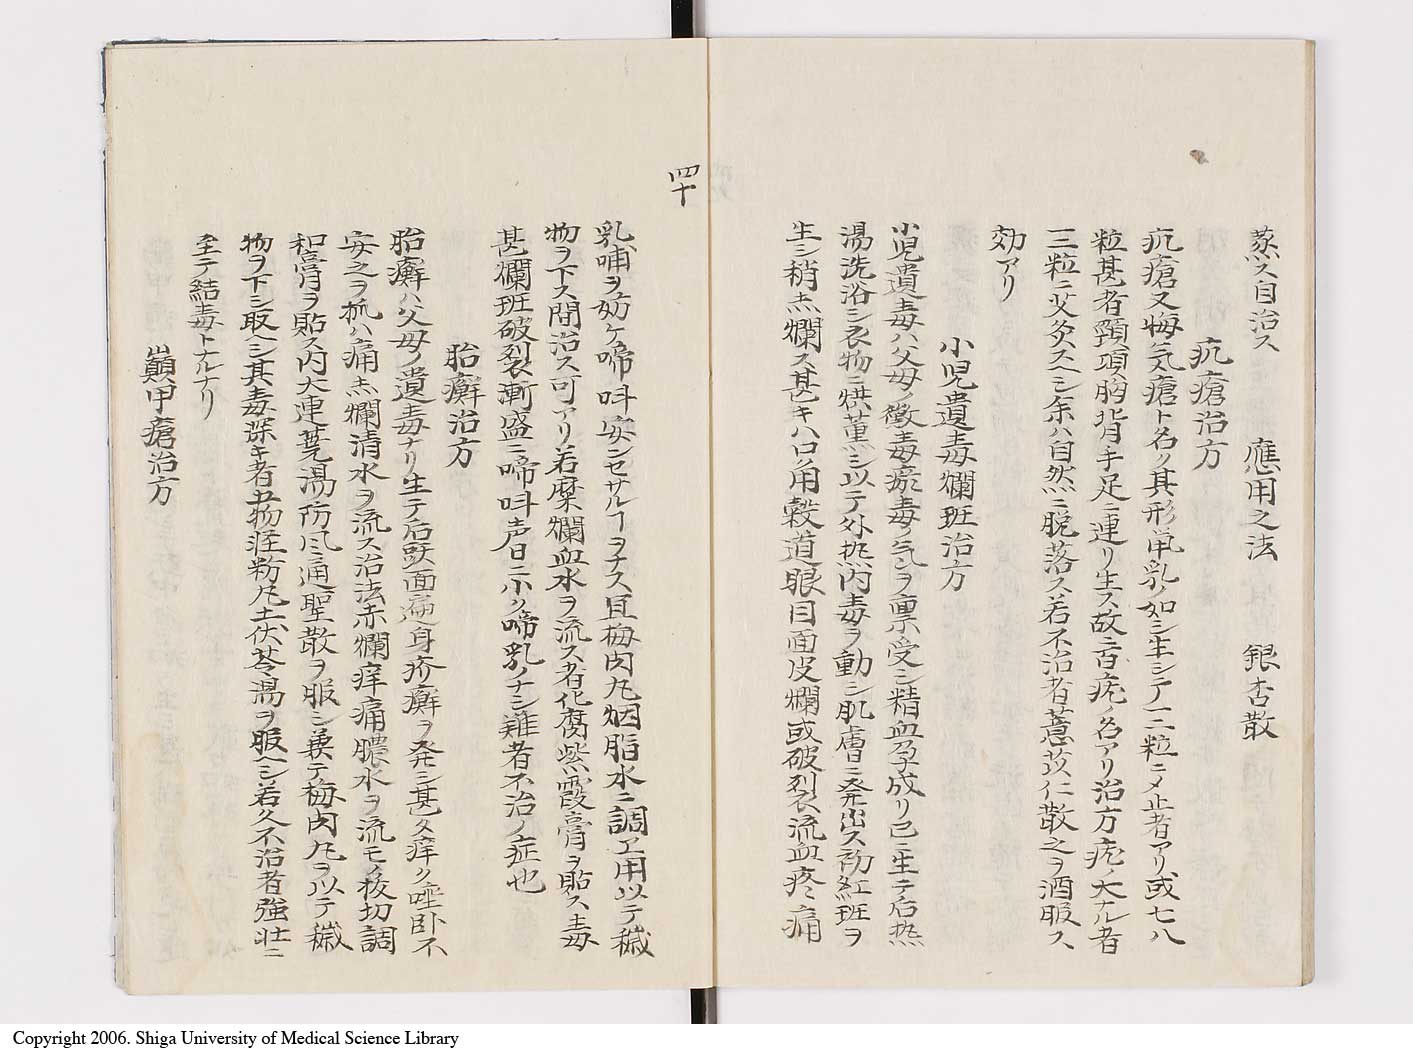 蒸ス自治ス　應用之法　銀杏散
疣瘡治方
疣瘡又悔気瘡ト名ク其形鼠乳ノ如シ生シテ一二粒ニメ止者アリ或七八
粒甚者頸項胸背手足ニ連リ生ス故ニ百疣ノ名アリ治方疣ノ大ナル者
三粒ニ艾灸スヘシ余ハ自然ニ脱落ス若不治者薏苡仁散之ヲ酒服ス
効アリ
小児遺毒爛班治方
小児遺毒ハ父母ノ黴毒瘀毒ノ気ヲ禀受シ精血孕成リ已ニ生テ后热
湯洗浴シ衣物ニ烘薫シ以テ外热内毒ヲ動シ肌膚ニ発出ス初紅班ヲ
生シ稍赤爛ス甚キハ口角穀道眼目面皮爛或破裂流血疼痛
四十
乳哺ヲ妨ケ啼呌安ンセサルヿヲナス且梅肉丸烟脂水ニ調ヱ用以テ穢
物ヲ下ス間治ス可アリ若糜爛血水ヲ流ス者化腐紫霞膏ヲ貼ス毒
甚爛班破裂漸盛ニ啼呌声日ニ小ク啼乳ノナシ難者不治ノ症也
胎癬治方
胎癬ハ父母ノ遺毒ナリ生テ后頭面遍身疥癬ヲ発シ甚タ痒ク唾卧不
安之ヲ抓ハ痛赤爛清水ヲ流ス治法赤爛痒痛膿水ヲ流モノ桉切調
和膏ヲ貼ス内大連翹湯防风通聖散ヲ服シ兼テ梅肉丸ヲ以テ穢
物ヲ下シ取ヘシ其毒深キ者五物䡖粉丸土伏苓湯ヲ服ヘシ若久不治者強壮ニ
至テ結毒トナルナリ
巓甲瘡治方
Copyright 2006. Shiga University of Medical Science Library